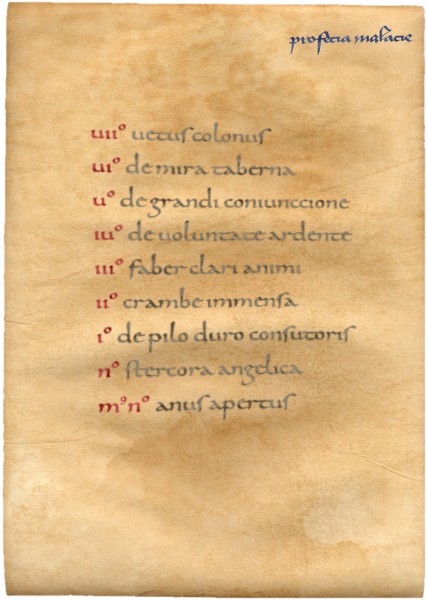 profecia malacie
uii° uetus colonus
ui° de mira taberna
u° de grandi coniunccione
iu° de uoluntate ardente
iii° faber clari animi
ii° crambe immensa
i° de pilo duro consutoris
n° stercora angelica
m⁹n° anus apertus